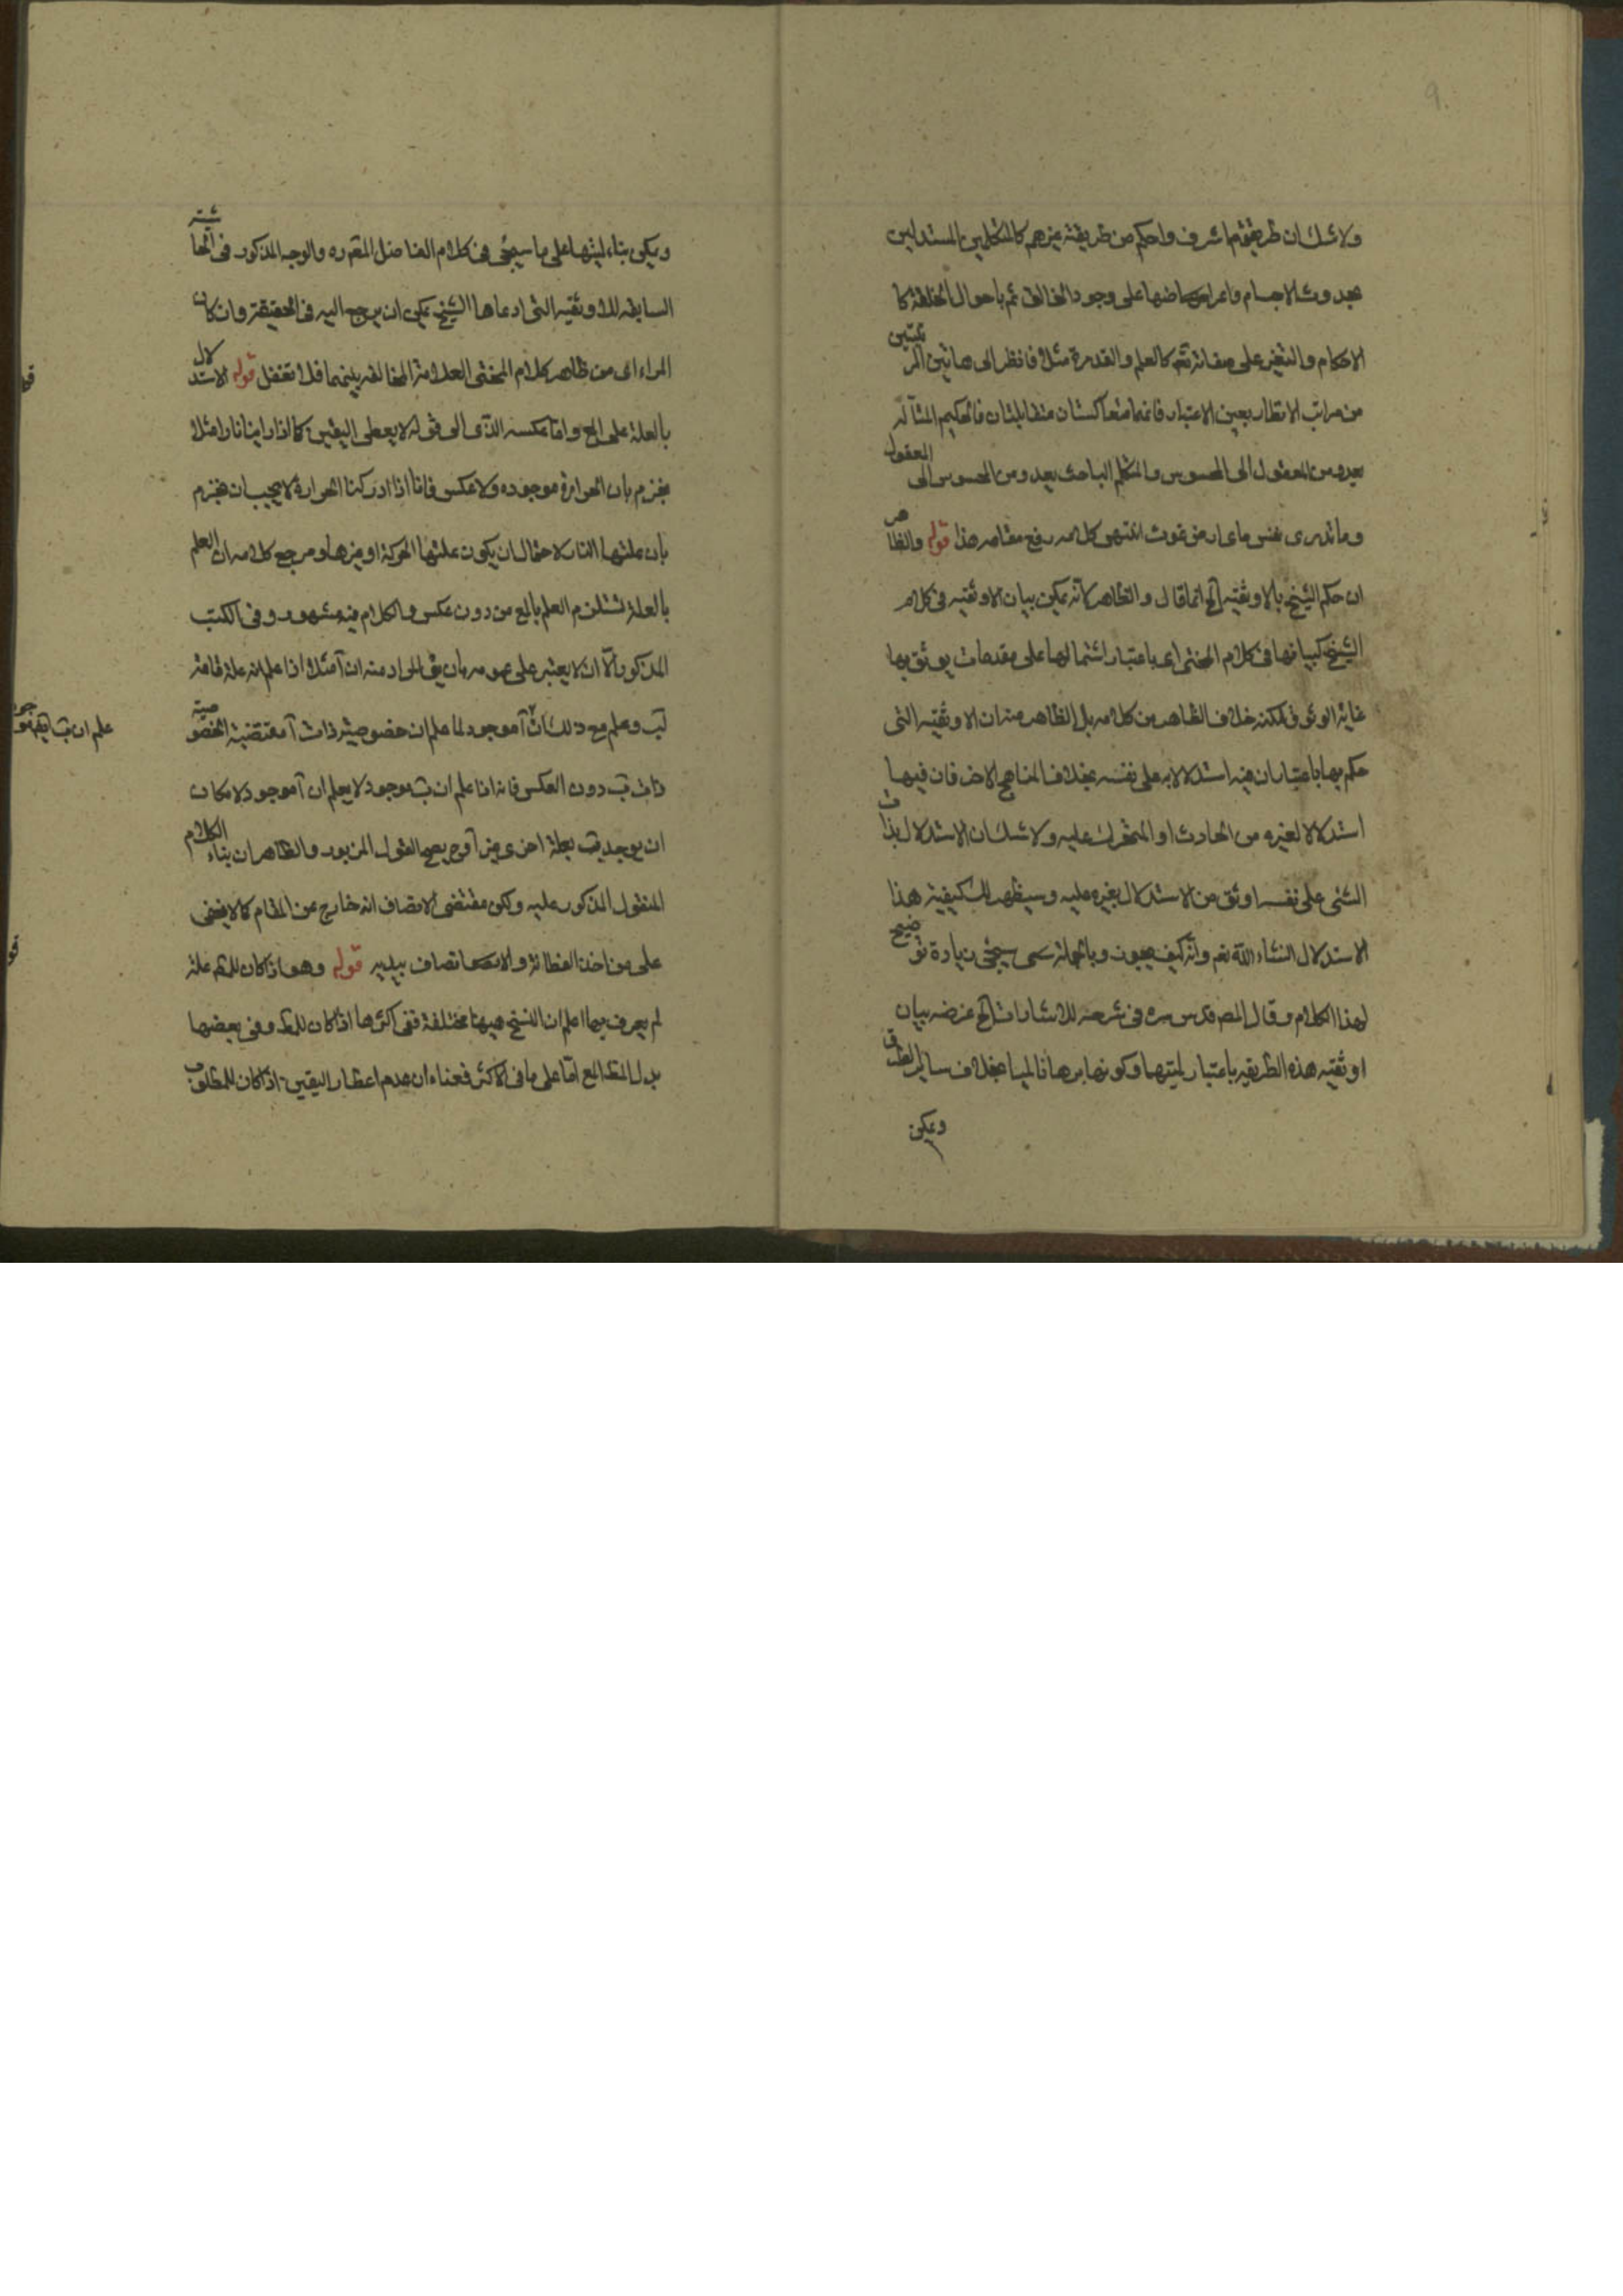 ولا شك ان طريقتهم اشرف واحكم من طريقة غيرهم كالمتكلمين المستدلين
بحدوث الاجسام واعراضها على وجود الخالق ثم باحوال الخلقة كا
الاحكام والتغير على صفاته تعـ كالعلم والقدرة مثلا فانظر الى هاتين المرتبتين
من مراتب الانظار بعين الاعتبار فانهما متعاكستان متقابلتان فالحكيم المتاله
يعدو من المعقول الى المحسوس والمتكلم الباحث يعدو من المحسوس الى المعقول
وما تدرى نفس ماى ارض تموت انتهى كلامه رفع مقامه هذا قوله والظاهر
ان حكم الشيخ بالاوثقية الخ انما قال والظاهر لانه يمكن بيان الاوثقيه فى كلام
الشيخ كبيانها فى كلام المحشى اى باعتبار اشتمالها على مقدمات يوثق بها
غاية الوثوق لكنه خلاف الظاهر من كلامه بل الظاهر منه ان الاوثقيه التى
حكم بها باعتبار ان فيه استدلالا به على نفسه بخلاف المناهج الاخر فان فيها
استدلالا لغيره من الحادث او المتحرك عليه ولا شك ان الاستدلال بذات
الشئ على نفسه اوثق من الاستدلال بغيره عليه وسيظهر لك كيفية هذا
الاستدلال انشاء الله تعـ وانه كيف يكون وبالجملة سيجئ زيادة توضيح
لهذا الكلام وقال المصـ قدس سره فى شرحه للاشارات الخ غرضه بيان
اوثقيه هذه الطريقه باعتبار لميتها وكونها برهانا لميا بخلاف ساير الطرق
ويمكن
ويمكن بناء لميتها على ما سيجئ فى كلام الفاضل المقرره والوجه المذكور فى الحاشية
السابقه للاوثقيه التى ادعاها الشيخ يمكن ان يرجع اليه فى الحقيقة وان كان
المراءى من ظاهر كلام المحشى العلامة المخالفه بينهما فلا تغفل قوله الاستدلال
بالعلة على المع واما عكسه الذى الى قوله لا يعطى اليقين كما اذا راينا نارا مثلا
نجزم بان الحرارة موجوده ولا عكس فانا اذا ادركنا الحرارة لا يجب ان نجزم
بان علتها النار لاحتمال ان يكون علتها الحركة او غيرها ومرجع كلامه ان العلم
بالعلة يستلزم العلم بالمع من دون عكس والكلام فيه مشهور وفى الكتب
المذكور الا ان لا يعتبر على عمومه بان يق المراد منه ان آ مثلا اذا علم انه علة تامة
لب وعلم مع ذلك ان آ موجود لما علم ان خصوصية ذات آ مقتضية لخصوصية
ذات ب دون العكس فانه اذا علم ان ب موجود لا يعلم ان آ موجود لامكان
ان يوجد ب بعلة اخرى غير آ وح يصح القول المزبور والظاهر ان بناء الكلام
المنقول المذكور عليه ولكن مقتضى الانصاف انه خارج عن المقام كما لا يخفى
على من اخذ الفطانة والانصاف بيديه قوله وهو اذ كان للمط علة
لم يعرف بها اعلم ان النسخ هيهنا مختلفة ففى اكثرها اذا كان للمط وفى بعضها
بدل المط المع اما على ما فى الاكثر فمعناه ان عدم اعطاء اليقين اذا كان للمطلوب
علم ان ب ايضا موجود